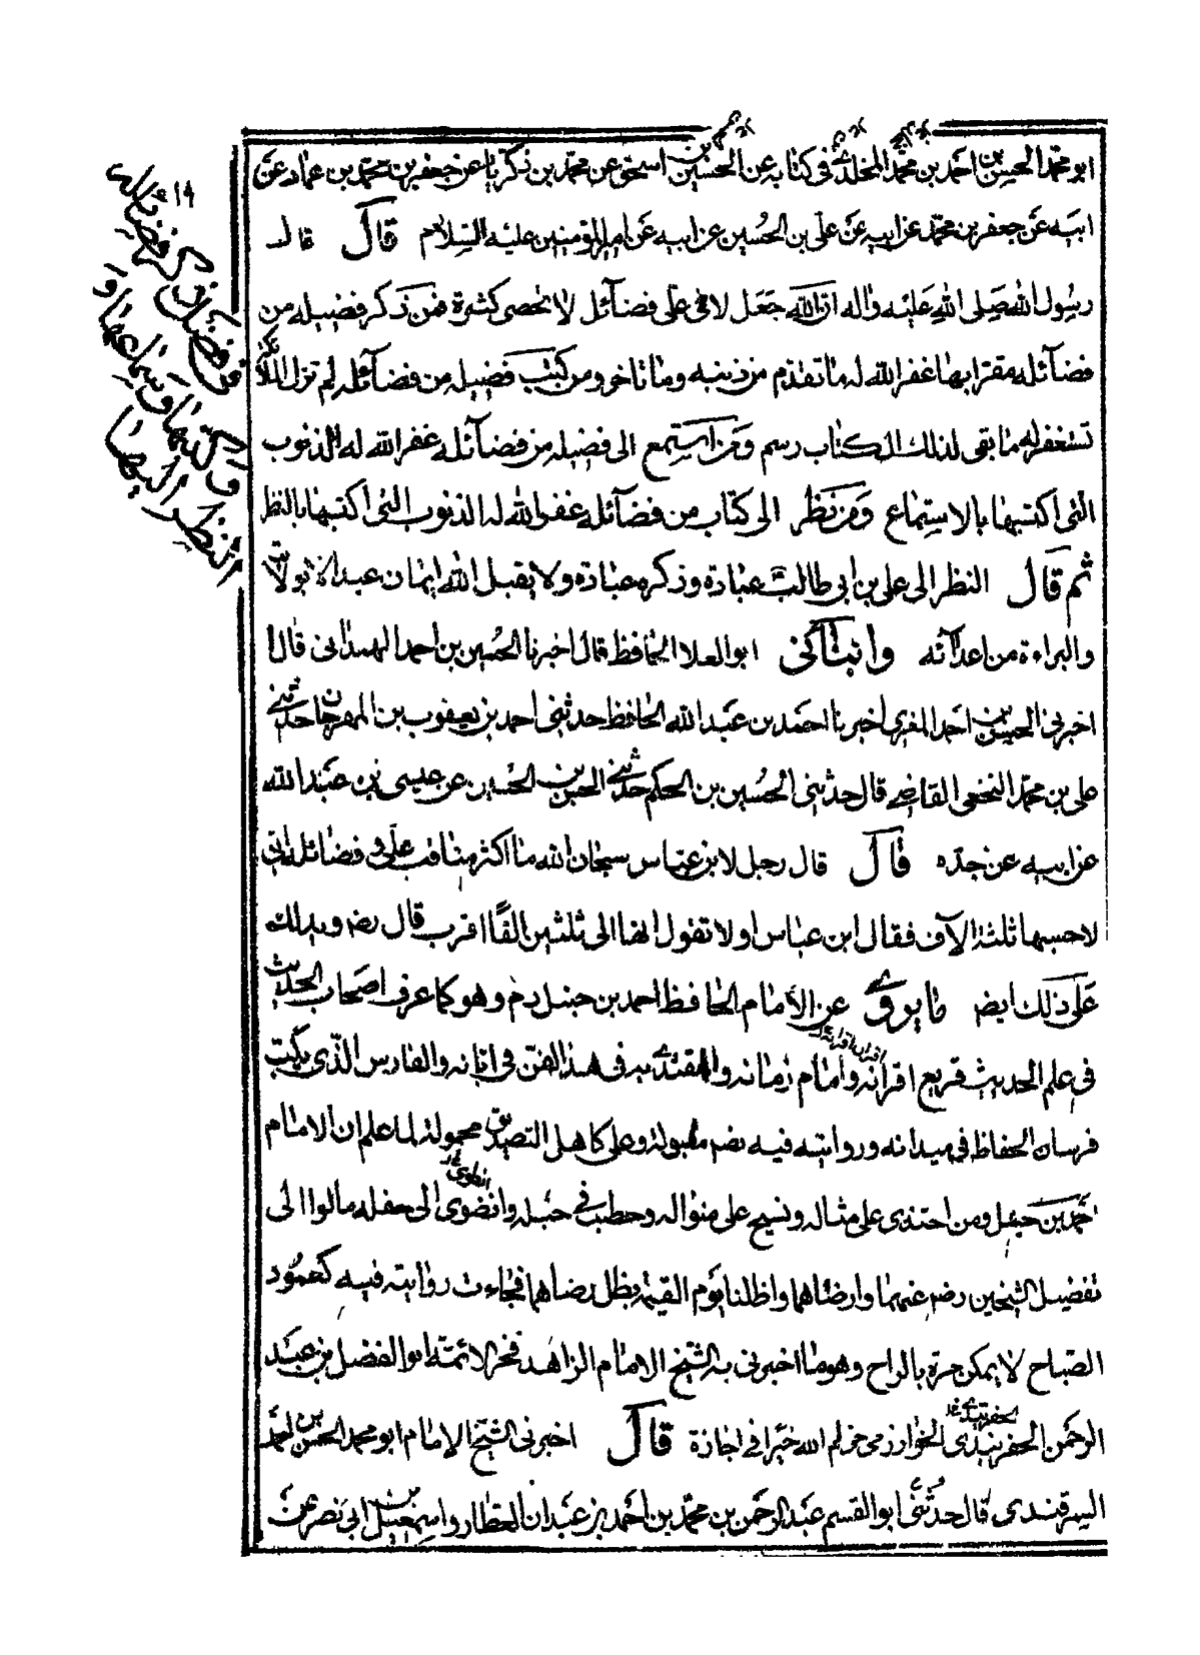 ابو محمد الحسن بن احمد بن محمد المخلدي في كتابه عن الحسين بن اسحق عن محمد بن زكريا عن جعفر بن محمد بن عماد عن
ابيه عن جعفر بن محمد عن ابيه عن علي بن الحسين عن ابيه عن امير المؤمنين عليه السلام قال قال
رسول الله صلى الله عليه واله ان الله جعل لاخي علي فضآئل لا تحصى كثرة فمن ذكر فضيله من
فضآئله مقرا بها غفر الله له ما تقدم من ذنبه وما تاخر ومن كتب فضيله من فضآئله لم تزل الملائكة
تستغفر له ما بقى لذلك الكتاب رسم ومن استمع الى فضيله من فضآئله غفر الله له الذنوب
التي اكتسبها بالاستماع ومن نظر الى كتاب من فضآئله غفر الله له الذنوب التي اكتسبها بالنظر
ثم قال النظر الى علي بن ابي طالب عبادة وذكره عبادة ولا يقبل الله ايمان عبد الا بولايته
والبراءة من اعدآئه وانبأني ابو العلا الحافظ قال اخبرنا الحسين بن احمد الهمداني قال
اخبرني الحسن بن احمد المقري اخبرنا احمد بن عبد الله الحافظ حدثني احمد بن يعقوب بن المهرجان حدثني
علي بن محمد النخعي القاضي قال حدثني الحسين بن الحكم حدثني الحسن بن الحسين عن عيسى بن عبد الله
عن ابيه عن جده قال قال رجل لابن عباس سبحان الله ما اكثر مناقب علي وفضائله اني
لاحسبها ثلثة الآف فقال ابن عباس اولا تقول انها الى ثلثين الفا اقرب قال رضه ويدلك
على ذلك ايضا ما يروى عن الأمام الحافظ احمد بن حنبل رحم وهو كما عرف اصحاب الحديث
في علم الحديث قريع اقرانه وامام زمانه والمقتدي به في هذا الفن في ابانه والفارس الذي يكب
فرسان الحفاظ في ميدانه وروايته فيه رضه مقبولة وعلى كاهل التصديق محمولة لما علم ان الامام
احمد بن حنبل ومن احتذى على مثاله ونسج على منواله وحطب في حبله وانضوى الى حفله مالوا الى
تفضيل الشيخين رضه عنهما وارضاهما واظلنا يوم القيمة بظل رضاهما فجاءت روايته فيه كعمود
الصباح لا يمكن ستره بالراح وهو ما اخبرني به الشيخ الامام الزاهد فخر الائمة ابو الفضل بن عبد
الرحمن الحفربندي الخوارزمي جزاه الله خيرا في اجازة قال اخبرني الشيخ الامام ابو محمد الحسن بن احمد
السمرقندي قال حدثني ابو القسم عبد الرحمن بن محمد بن احمد بن عبدان العطار واسمعيل بن ابي نصر عن